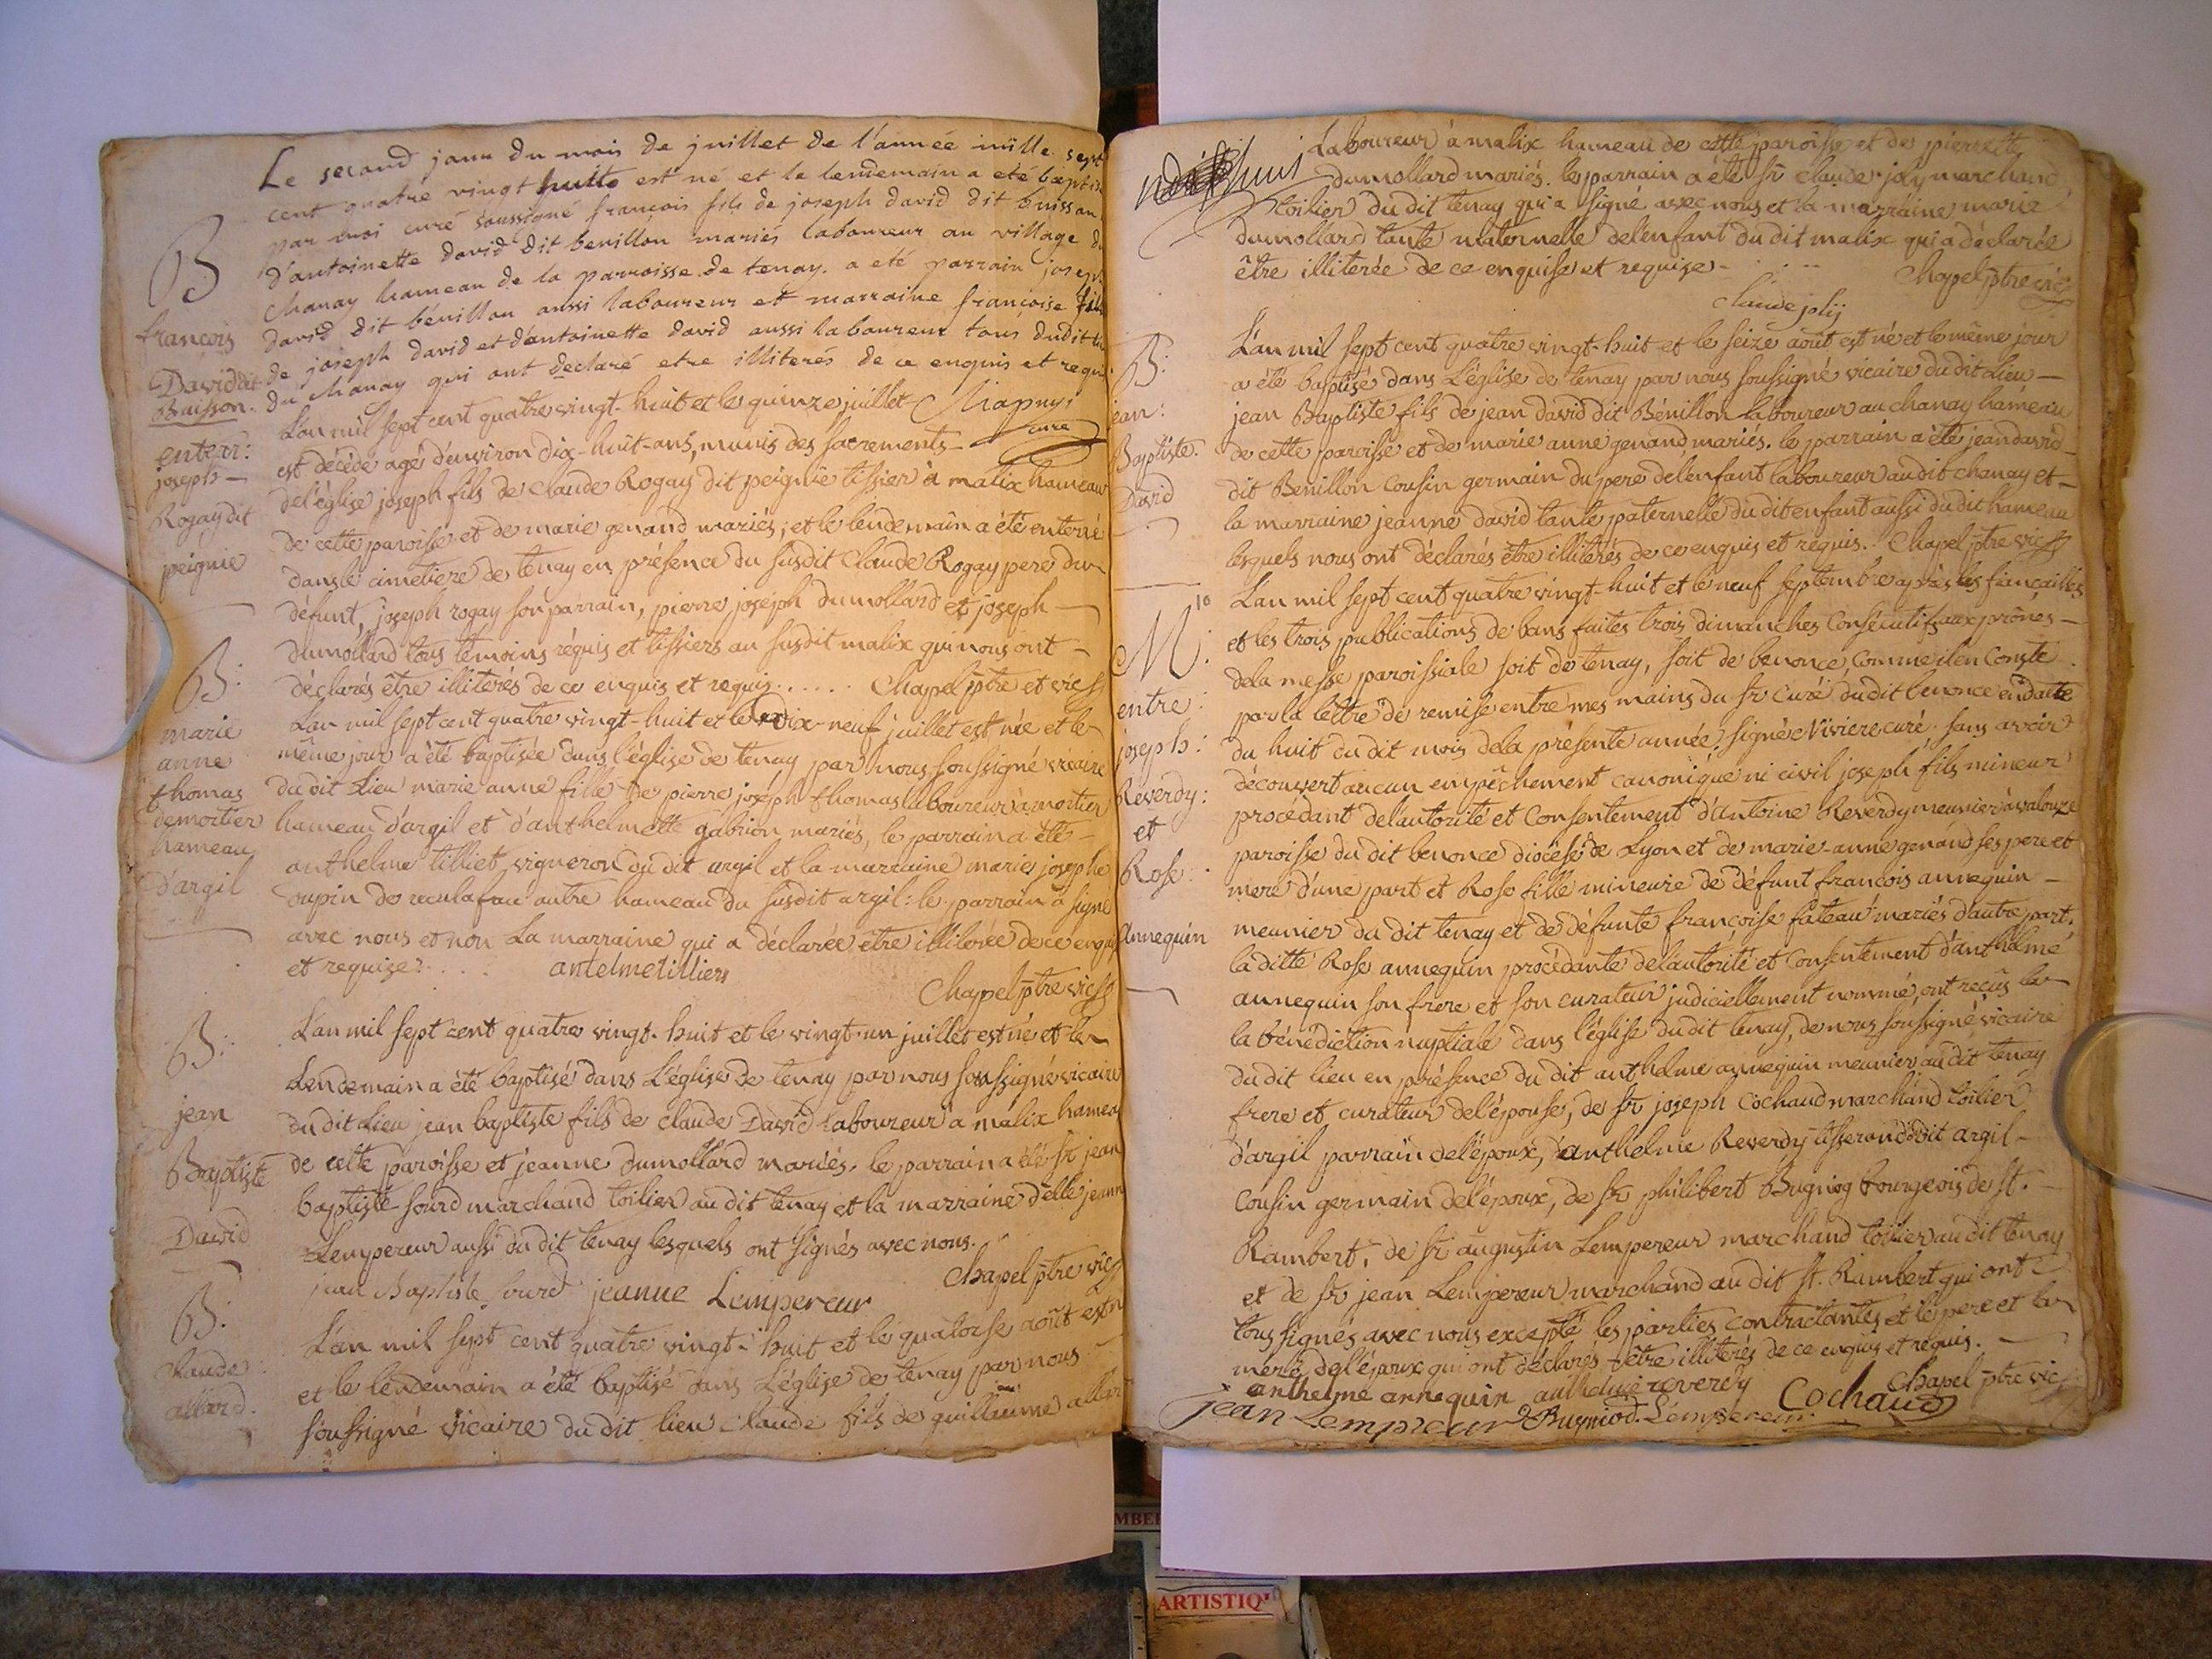 Le second jour du mois de juillet de l'année mille sept
cent quatre vingt huitte est né et le lendemain a eté baptisé
par moi curé soussigné françois fils de joseph david dit buisson
d'antoinette david dit benillon mariés laboureur au village du
chanay hameau de la parroisse de tenay. a eté parrain joseph
david dit bénillon aussi laboureur et marraine françoise fille
de joseph david et d'antoinette david aussi laboureur tous dudit lieu
du chanay qui ont declaré etre illiterés de ce enquis et requis
curé
B
françois
David dit
Buisson.
L'an mil sept cent quatre vingt-huit et le quinze juillet
est décédé agé d'environ dix-huit-ans, munis des sacrements
de l'église joseph fils de Claude Rogay dit peignie tissier à malix hameau
de cette paroisse et de marie genand mariés; et le lendemain a été enterré
dans le cimetiere de tenay en présence du susdit Claude Rogay pere du
défunt, joseph rogay son parrain, pierre joseph dumollard et joseph
dumollard tous témoins réquis et tissiers au susdit malix qui nous ont
déclarés être illiteres de ce enquis et requis..... Chapel ptre et vic
enterr:
joseph
Rogay dit
peignie
L'an mil sept cent quatre vingt-huit et le dix-neuf juillet est née et le
même jour a été baptisée dans l'église de tenay par nous soussigné vicaire
du dit Lieu marie anne fille de pierre joseph thomas laboureur à mortier
hameau d'argil et d'anthelmette gabrion mariés, le parrain a été
anthelme tilliet vigneron du dit argil et la marraine marie josephe
dupin de reculafau autre hameau du susdit argil: le parrain a signé
avec nous et non La marraine qui a déclarée être illiterée de ce enquise
et requise.... antelme tilliers
Chapel ptre vic
B:
marie
anne
thomas
demortier
hameau
d'argil
L'an mil sept cent quatre vingt-huit et le vingt-un juillet est né et le
Lendemain a été baptisé dans L'église de tenay par nous soussigné vicaire
du dit Lieu jean baptiste fils de claude David laboureur à malix hameau
de cette paroisse et jeanne dumollard mariés. le parrain a été Sr jean
baptiste sourd marchand toilier au dit tenay et la marraine d'elle jeanne
Lempereur aussi du dit tenay lesquels ont signés avec nous.
jean Baptiste Sourd jeanne Lempereur Chapel ptre vic
B:
jean
Baptiste
David
L'an mil sept cent quatre vingt-huit et le quatorse août est né
et le lendemain a été baptisé dans L'église de tenay par nous
soussigné vicaire du dit lieu Claude fils de guillaume allard
B:
Claude
allard.
Laboureur à malix hameau de cette paroisse et de pierrette
dumollard mariés. le parrain a été Sr claude joly marchand
toilier du dit tenay qui a signé avec nous et la marraine marie
dumollard tante maternelle de l'enfant du dit malix qui a déclarée
être illiterée de ce enquise et requise.
Chapel ptre vic
Claude jolij
L'an mil sept cent quatre vingt-huit et le seize août est né et le même jour
a été baptisé dans L'église de tenay par nous soussigné vicaire du dit Lieu
jean Baptiste fils de jean david dit Bénillon laboureur au chanay hameau
de cette paroisse et de marie anne genand mariés. le parrain a été jean david
dit Benillon cousin germain du pere de l'enfant laboureur au dit chanay et
la marraine jeanne david tante paternelle du dit enfant aussi du dit hameau
lesquels nous ont déclarés être illitérés de ce enquis et requis. Chapel ptre vic
B:
jean:
Baptiste.
David
L'an mil sept cent quatre vingt-huit et le neuf septembre après les fiançailles
et les trois publications de bans faites trois dimanches Consécutifs aux prônes
de la messe paroissiale soit de tenay, soit de benonce, Comme il en Conste
par la lettre de remise entre mes mains du Sr Curé du dit benonce en datte
du huit du dit mois de la présente année, signé Niviere curé. sans avoir
découvert aucun empêchement canonique ni civil joseph fils mineur
procédant de l'autorité et Consentement d'antoine Reverdy meunier à valouze
paroisse du dit benonce diocèse de Lyon et de marie-anne genand ses pere et
mere d'une part et Rose fille mineure de défunt francois annequin
meunier du dit tenay et de défunte françoise fateau mariés d'autre part.
la ditte Rose annequin procédante de l'autorité et Consentement d'anthelme
annequin son frere et son curateur judiciellement nommé, ont reçus la
la bénédiction nuptiale dans l'église du dit tenay, de nous soussigné vicaire
du dit lieu en présence du dit anthelme annequin meunier au dit tenay
frere et curateur de l'épouse, de Sr joseph Cochaud marchand toilier
d'argil parrain de l'époux, d'anthelme Reverdy tisserand du dit argil
Cousin germain de l'époux, de Sr philibert Bugniog bourgeois de St.
Rambert, de Sr augustin Lempereur marchand toilier au dit tenay
et de Sr jean Lempereur marchand au dit St. Rambert qui ont
tous signés avec nous excepté les parties Contractantes et le pere et la
mere de l'époux qui ont déclarés être illitérés de ce enquis et requis.
Chapel ptre vic
anthelme annequin anthelme reverdy Cochaud
jean Lempereur Bugniod. Lempereur
M:
entre:
joseph:
Reverdy:
et
Rose:
Annequin
ARTISTIQ